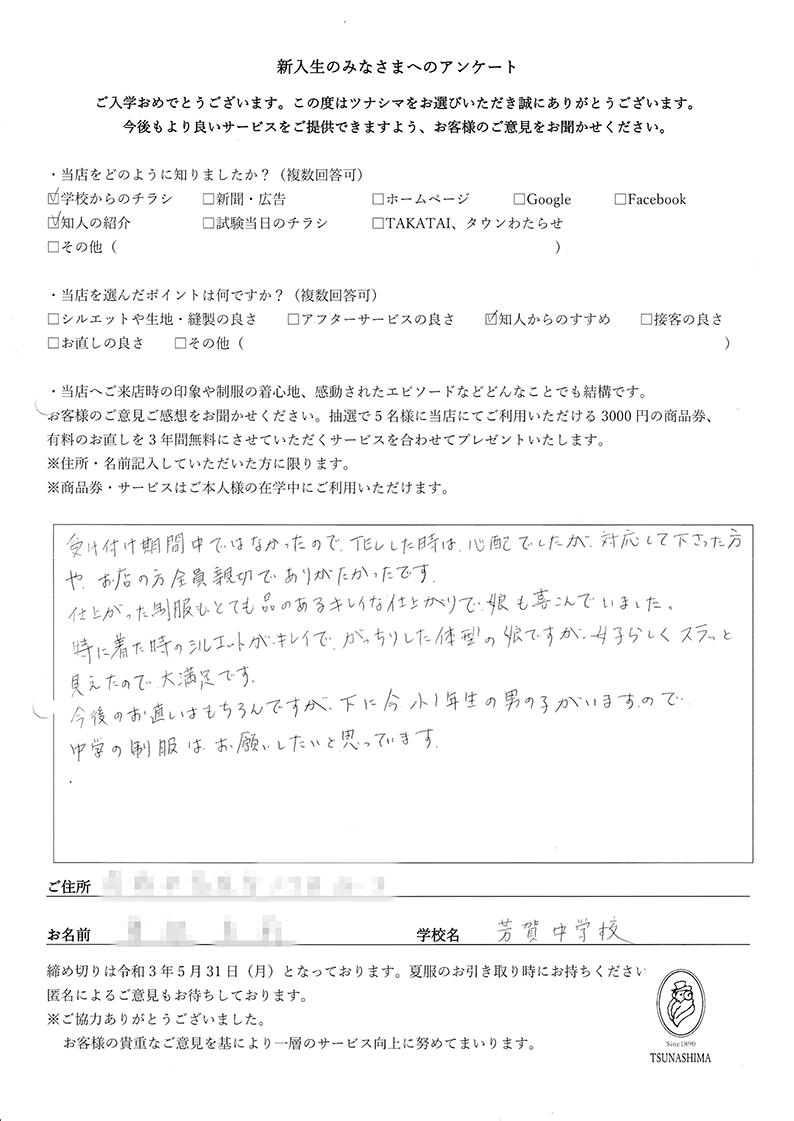 新入生のみなさまへのアンケート
ご入学おめでとうございます。この度はツナシマをお選びいただき誠にありがとうございます。
今後もより良いサービスをご提供できますよう、お客様のご意見をお聞かせください。
・当店をどのように知りましたか？（複数回答可）
☑学校からのチラシ □新聞・広告 □ホームページ □Google □Facebook
☑知人の紹介 □試験当日のチラシ □TAKATAI、タウンわたらせ
□その他（ ）
・当店を選んだポイントは何ですか？（複数回答可）
□シルエットや生地・縫製の良さ □アフターサービスの良さ ☑知人からのすすめ □接客の良さ
□お直しの良さ □その他（ ）
・当店へご来店時の印象や制服の着心地、感動されたエピソードなどどんなことでも結構です。
お客様のご意見ご感想をお聞かせください。抽選で5名様に当店にてご利用いただける3000円の商品券、
有料のお直しを3年間無料にさせていただくサービスを合わせてプレゼントいたします。
※住所・名前記入していただいた方に限ります。
※商品券・サービスはご本人様の在学中にご利用いただけます。
受け付け期間中ではなかったので、TELした時は、心配でしたが、対応して下さった方
や、お店の方全員親切でありがたかったです。
仕上がった制服もとても品のあるキレイな仕上がりで、娘も喜こんでいました。
特に着た時のシルエットがキレイで、がっちりした体型の娘ですが、女子らしくスラっと
見えたので、大満足です。
今後のお直しはもちろんですが、下に今、小1年生の男の子がいますので、
中学の制服は、お願いしたいと思っています。
ご住所
お名前 学校名 芳賀中学校
締め切りは令和3年5月31日（月）となっております。夏服のお引き取り時にお持ちください
匿名によるご意見もお待ちしております。
※ご協力ありがとうございました。
お客様の貴重なご意見を基により一層のサービス向上に努めてまいります。
Sine1890
TSUNASHIMA